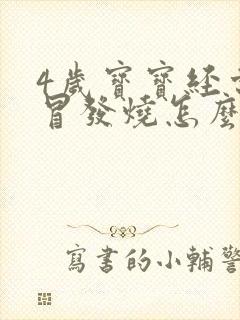 4歲寶寶經
冒發燒怎麼
寫書的小輔警